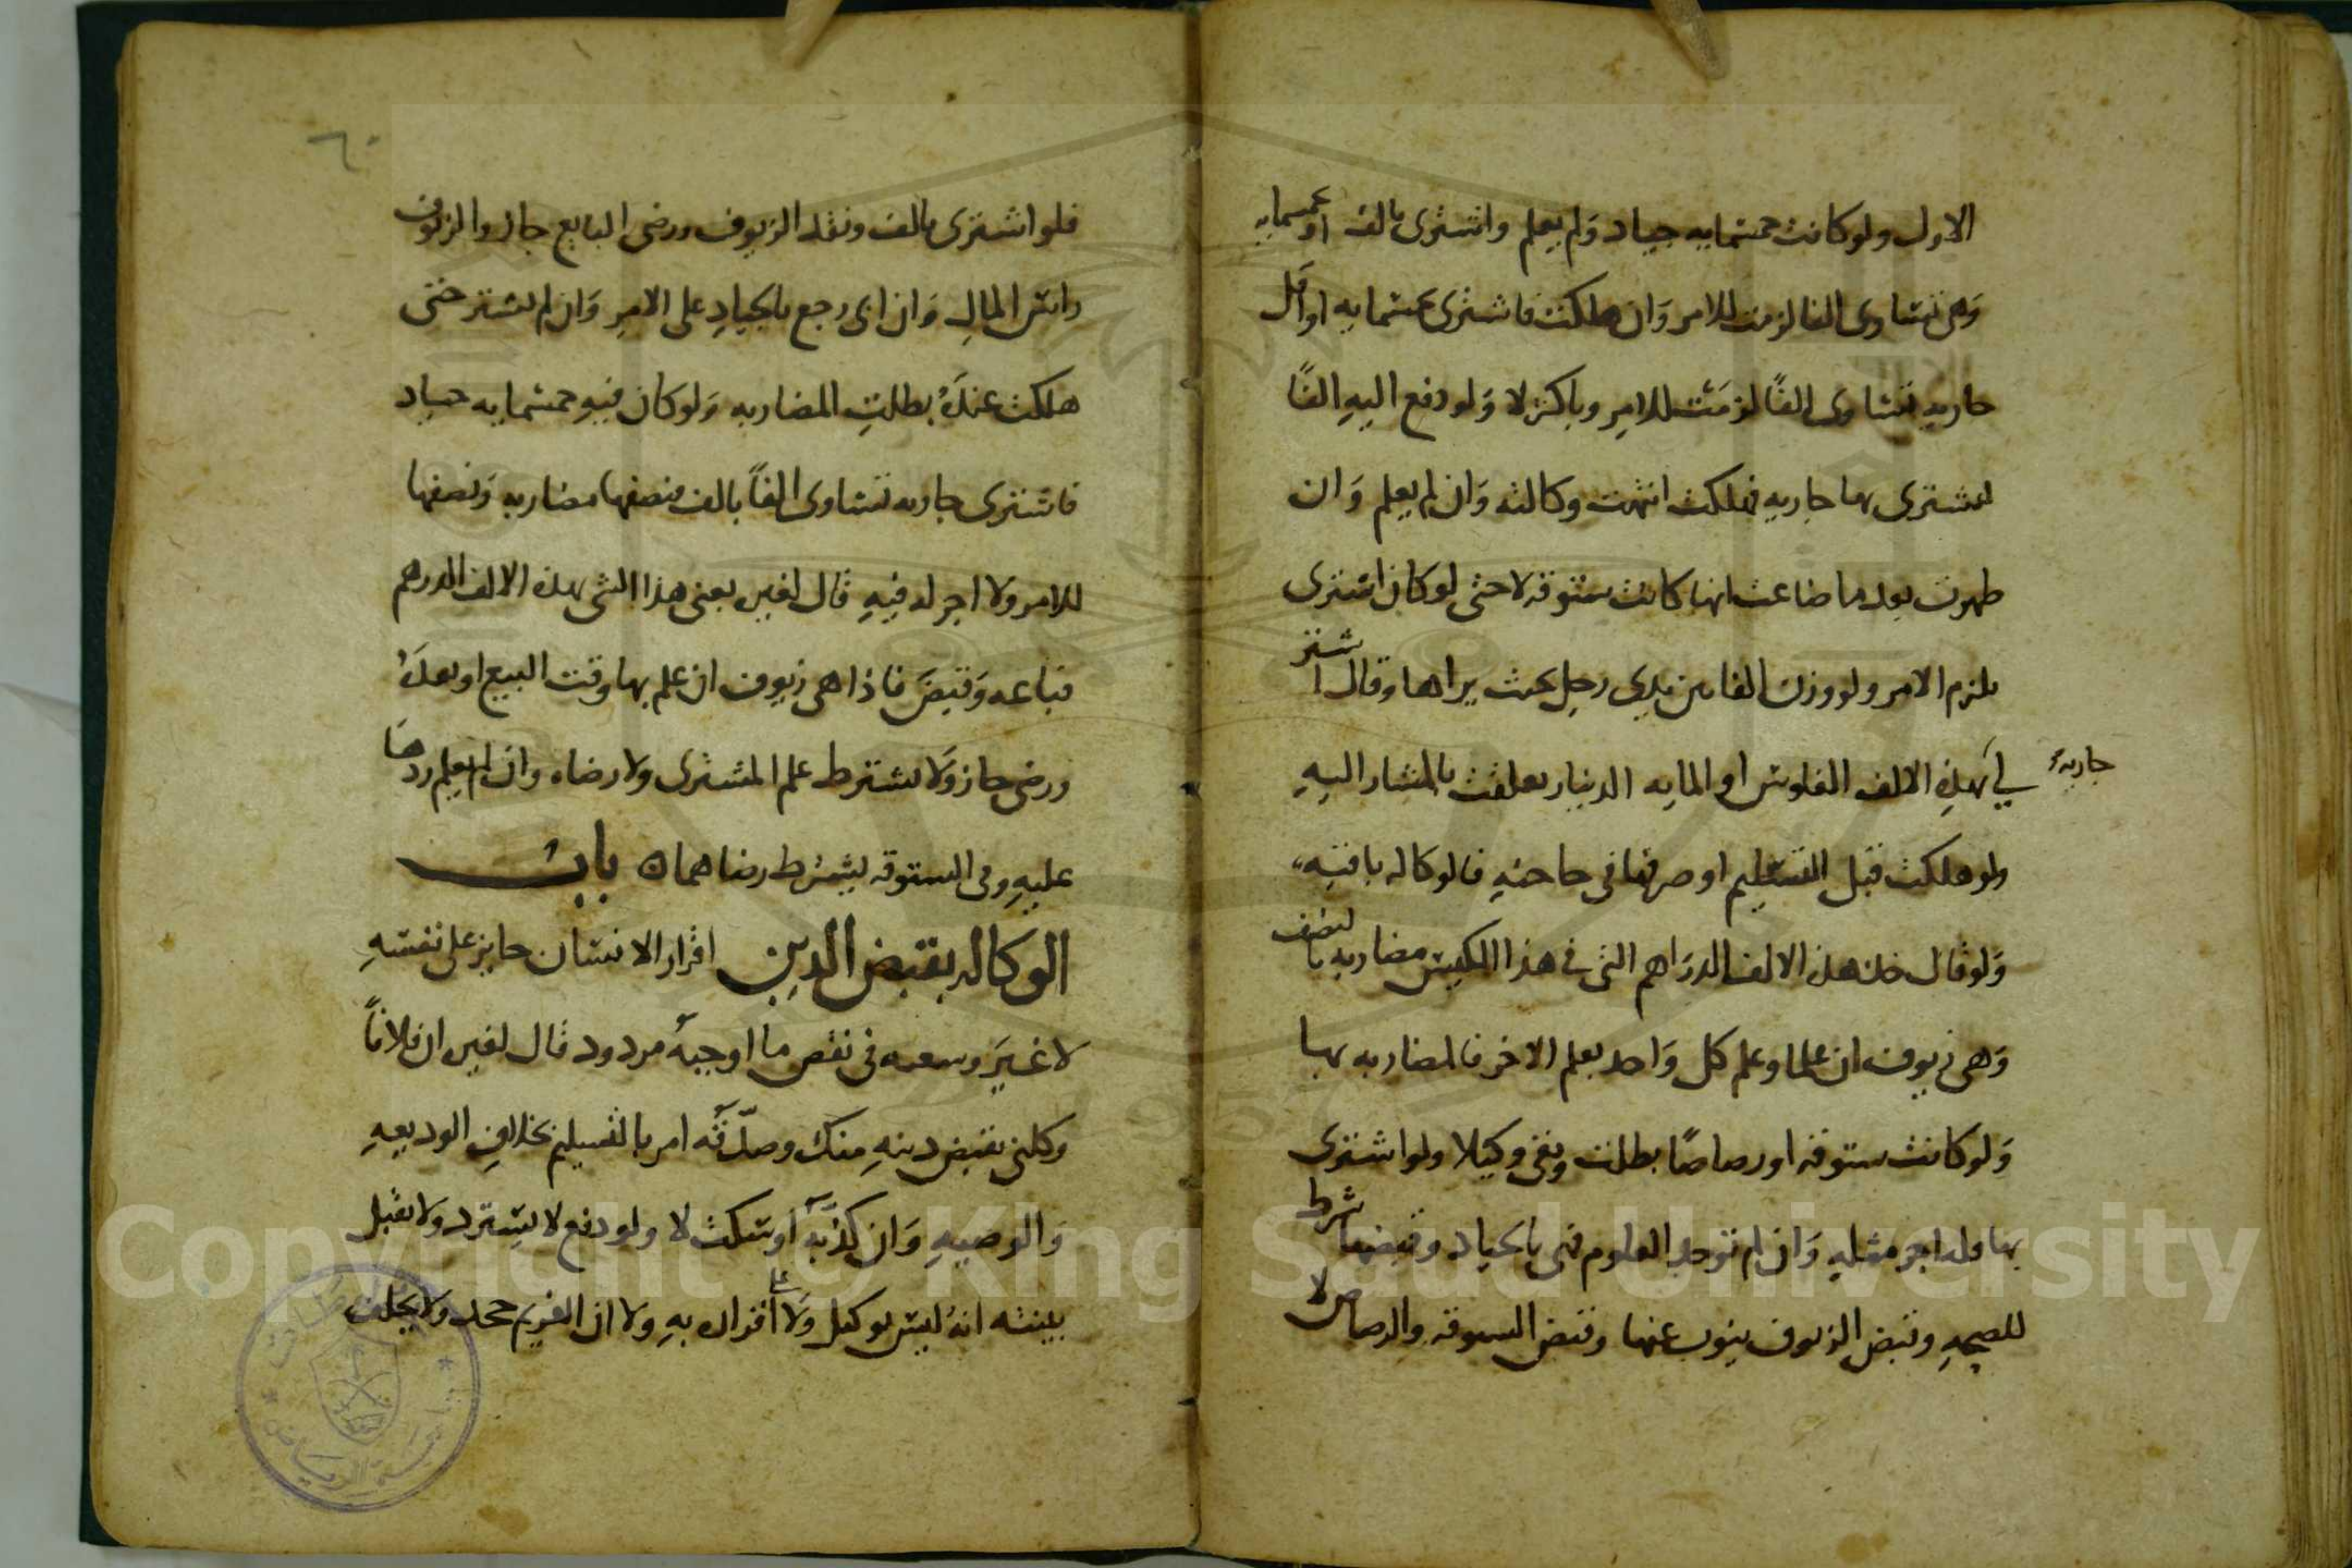 الاول ولو كانت خمسمايه جياد ولم يعلم واشترى بالف او بخمسمايه
وهى تساوى الفا لزمت للامر وان هلكت فاشترى بخمسمايه او اقل
جاريه تساوى الفًا لزمت للامر وباكثر لا ولو دفع اليه الفًا
ليشترى بها جاريه فهلكت انتهت وكالته وان لم يعلم وان
ظهرت بعد ما ضاعت انها كانت ستوقه لا حتى لو كان اشترى
يلزم الامر ولو وزن الفا بين يدى رجل بحيث يراها وقال اشتر
لي بهذه الالف الفلوس او المايه الدينار تعلقت بالمشار اليه
جارية
ولو هلكت قبل التسليم او صرفها فى حاجته فالوكاله باقيه
ولو قال خذ هذه الالف الدراهم التى فى هذا الكيس مضاربه بالنصف
وهى زيوف ان علما وعلم كل واحد بعلم الاخر فالمضاربه بها
ولو كانت ستوقه او رصاصًا بطلت وبقى وكيلا ولو اشترى
بها فله اجر مثله وان لم توجد العلوم فهى بالجياد وقبضها شرط
للصحه وقبض الزيوف ينوب عنها وقبض الستوقه والرصاص لا
٦٠
فلو اشترى بالف ونقد الزيوف ورضى البايع جاز والزيوف
راس المال وان ابى رجع بالجياد على الامر وان لم يشتر حتى
هلكت عنده بطلت المضاربه ولو كان فيه خمسمايه جياد
فاشترى جاريه تساوى الفاً بالف فنصفها مضاربه ونصفها
للامر ولا اجر له فيه قال لغيره بعنى هذا الشى بهذه الالف الدرهم
فباعه وقبض فاذا هى زيوف ان علم بها وقت البيع او بعده
ورضى جاز ولا يشترط علم المشترى ولا رضاه وان لم يعلم ردها
عليه وفى الستوقه يشترط رضاهما ه باب
الوكاله بقبض الدين اقرار الانسان جايز على نفسه
لا غير وسعيه فى نقض ما اوجبه مردود قال لغيره ان فلاناً
وكلنى بقبض دينه منك وصدّقه امر بالتسليم بخلاف الوديعه
والوصيه وان كذبه او سكت لا ولو دفع لا يسترد ولا تقبل
بينته انه ليس بوكيل ولا على اقراره به ولا ان الغريم جحد ولا يحلف
Copyright © King Saud University
1957